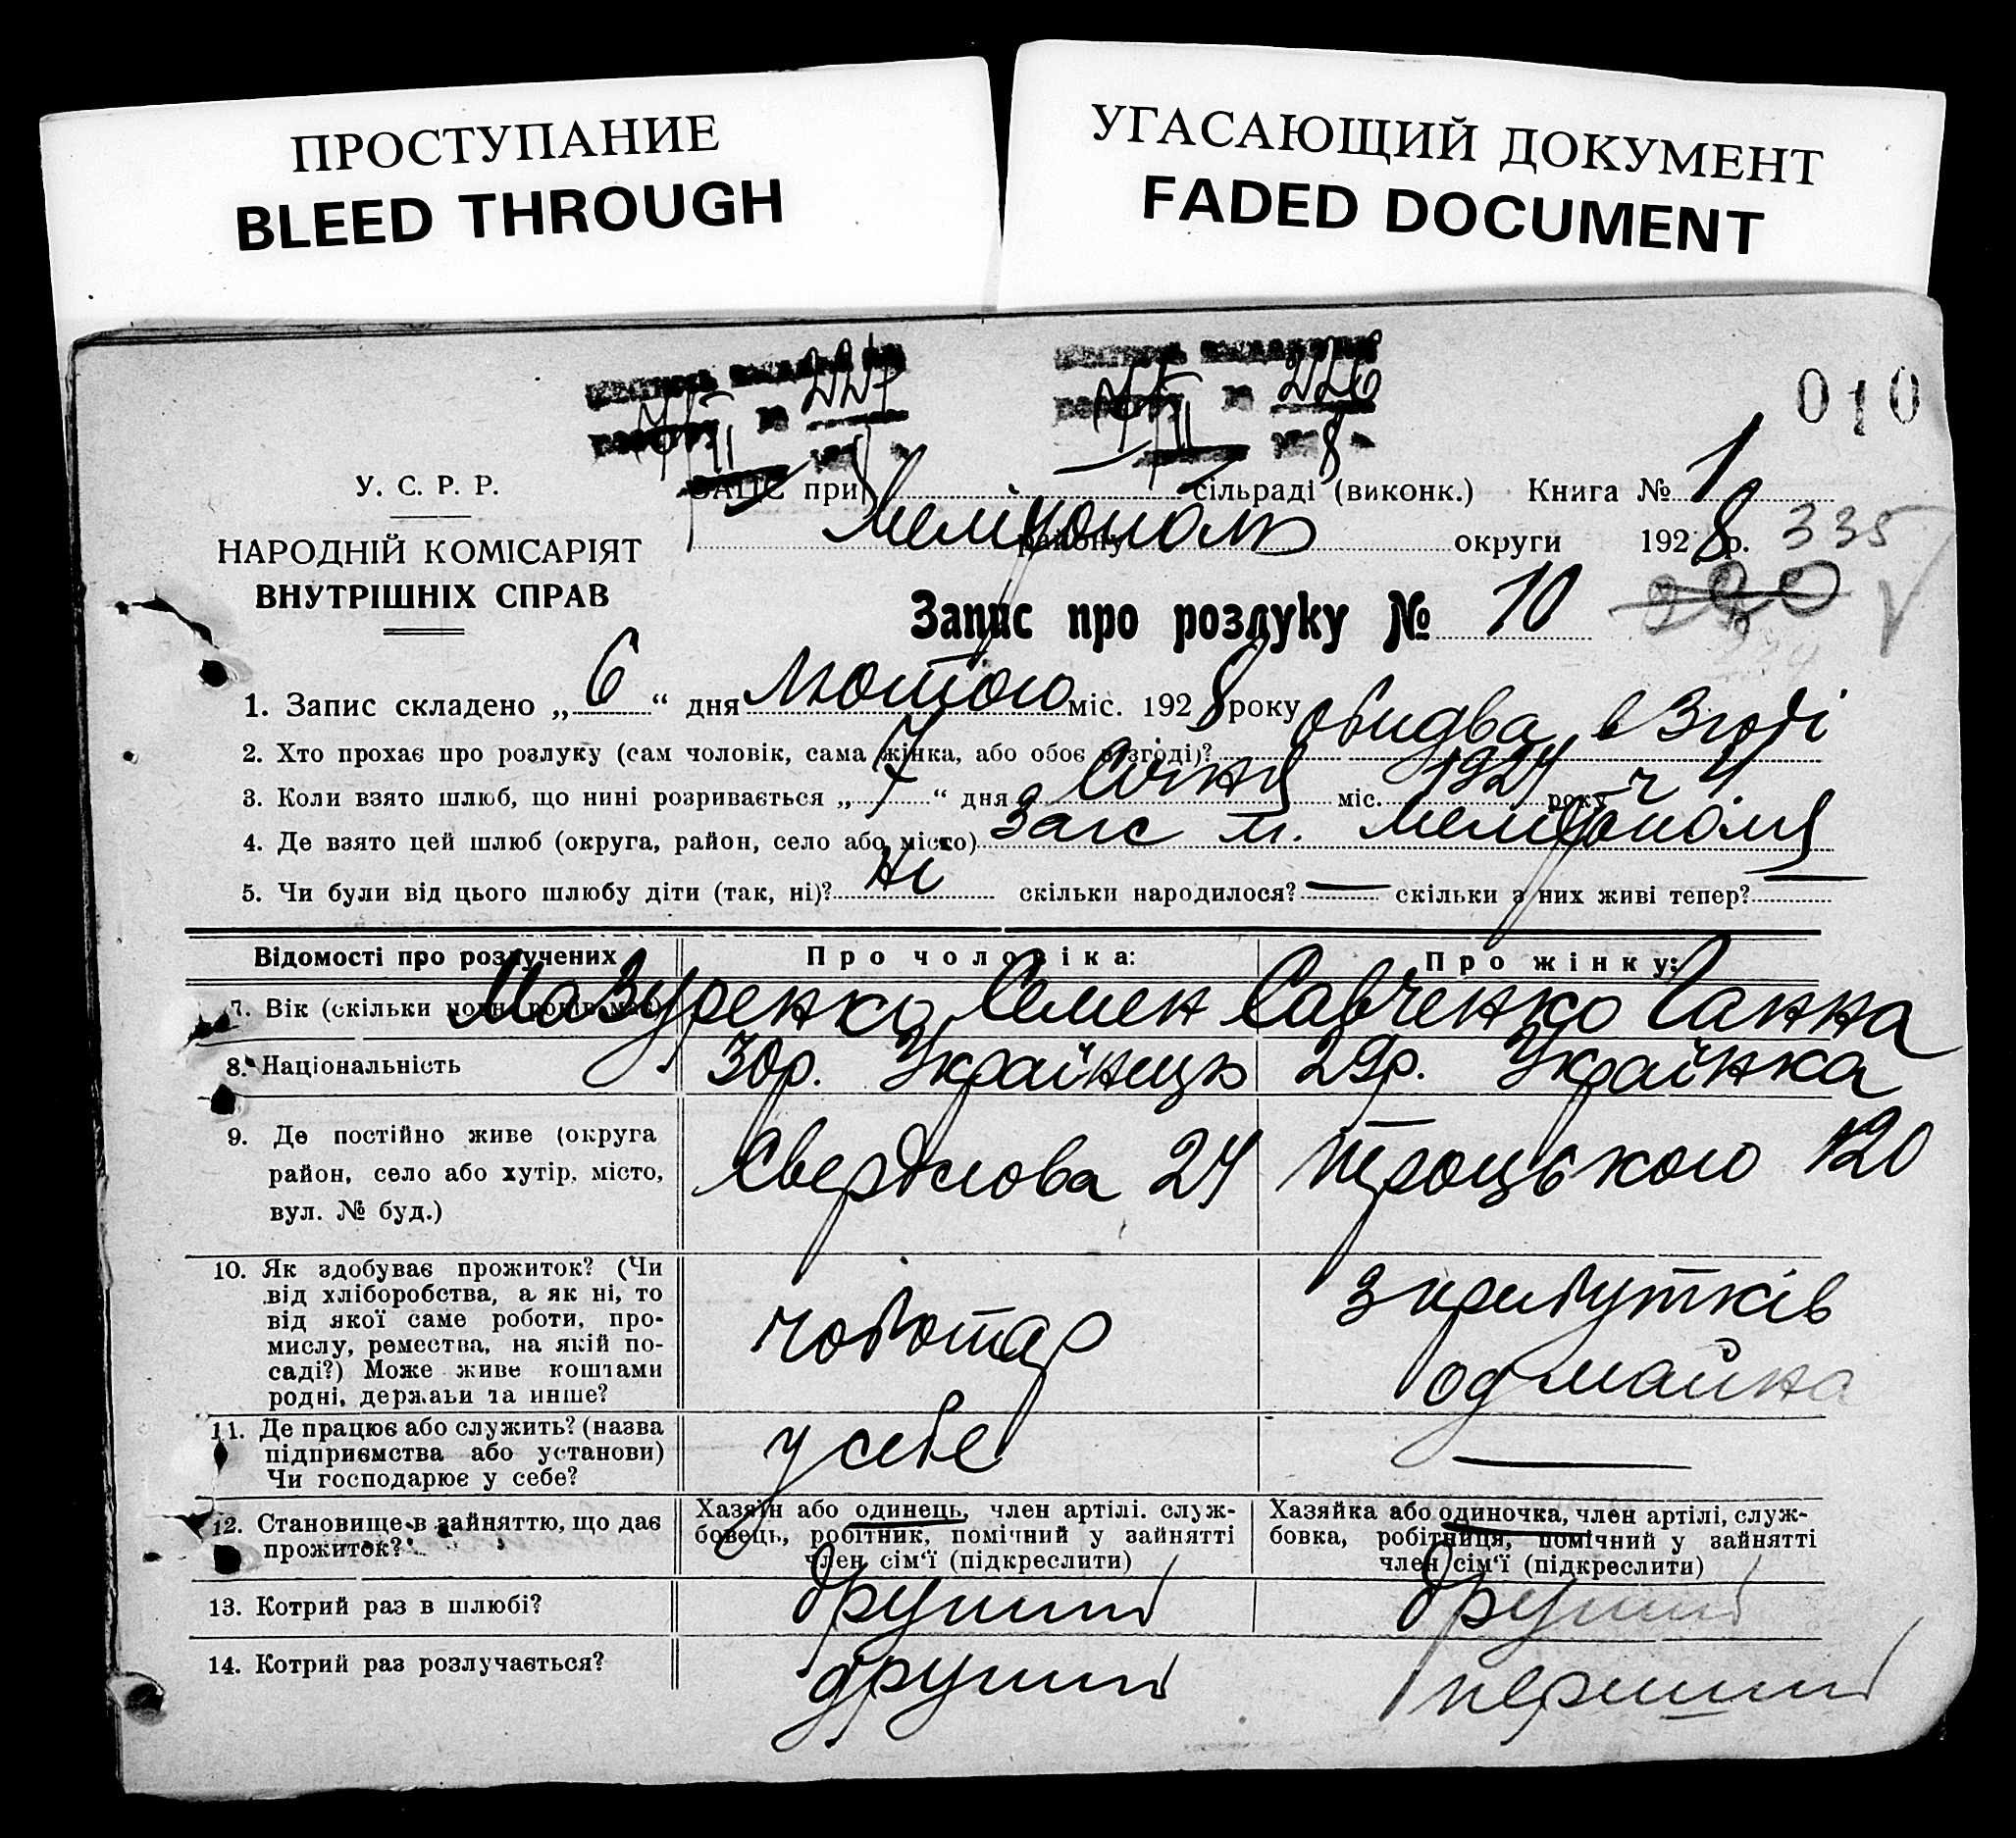 ПРОСТУПАНИЕ
BLEED THROUGH
УГАСАЮЩИЙ ДОКУМЕНТ
FADED DOCUMENT
227
226
8
010
У. С. Р. Р.
НАРОДНІЙ КОМІСАРІЯТ
ВНУТРІШНІХ СПРАВ
ЗАПС при сільраді (виконк.) Книга № 1
Мелітополь району округи 1928 р. 335
Запис про розлуку № 10 220
1. Запис складено „6“ дня Лютого міс. 1928 року
2. Хто прохає про розлуку (сам чоловік, сама жінка, або обоє в згоді)? Обидва в Згоді
3. Коли взято шлюб, що нині розривається „7“ дня Січня міс. 1927 року ч 4
4. Де взято цей шлюб (округа, район, село або місто) Загс м. Мелітополя
5. Чи були від цього шлюбу діти (так, ні)? Ні скільки народилося? — скільки з них живі тепер? —
Відомості про розлучених Про чоловіка: Про жінку:
Мазуренко Семен Савченко Ганна
7. Вік (скільки повн. років має)
8. Національність 30р. Українець 29р. Українка
9. Де постійно живе (округа район, село або хутір, місто, вул. № буд.) Свердлова 24 Троцького 120
10. Як здобуває прожиток? (Чи
від хліборобства, а як ні, то
від якої саме роботи, про-
мислу, ремества, на якій по-
саді?) Може живе коштами
родні, держави та инше?
чоботар
з прибутків
од майна
11. Де працює або служить? (назва
підприємства або установи)
Чи господарює у себе?
у себе —
12. Становище в зайняттю, що дає
прожиток?
Хазяїн або одинець, член артілі. служ-
бовець, робітник, помічний у зайнятті
член сім'ї (підкреслити)
Хазяйка або одиночка, член артілі, служ-
бовка, робітниця, помічний у зайнятті
член сім'ї (підкреслити)
13. Котрий раз в шлюбі? другий другий
14. Котрий раз розлучається? другий перший